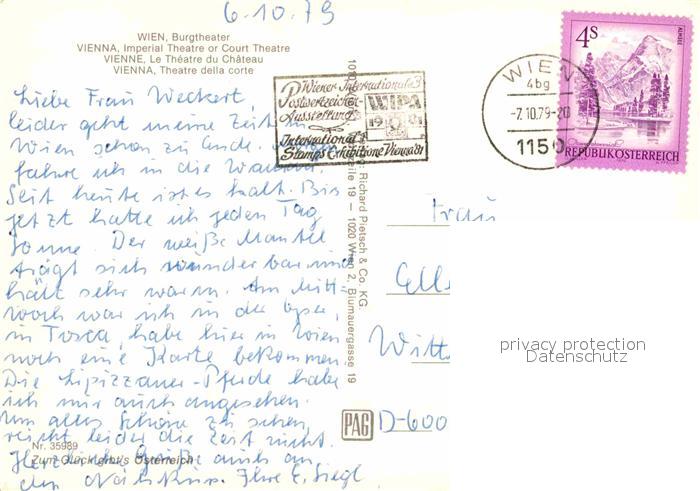 6.10.79
WIEN, Burgtheater
VIENNA, Imperial Theatre or Court Theatre
VIENNE, Le Théatre du Château
VIENNA, Theatre della corte
Liebe Frau Weckert,
leider geht meine Zeit in
Wien schon zu Ende.
fahre ich in die
Seit heute ist es kalt. Bis
jetzt hatte ich jeden Tag
Sonne. Der weiße Mantel
trägt sich wunderbar und
hält sehr warm. Am Mitt-
woch war ich in der Oper,
in Tosca, habe hier in Wien
noch eine Karte bekommen.
Die Lipizzaner-Pferde habe
ich mir auch angesehen.
Um alles Schöne zu sehen,
reicht leider die Zeit nicht.
Herzliche Grüße auch an
den Ihre E. Siegl
Nr. 35989
Zum Glück gibt's Österreich
Wiener Internationale
Postwertzeichen
Ausstellung
WIPA
1981
International
Stamps Exhibition Vienna 81
WIEN
4bg
-7.10.79-20
1150
4S
ALMSEE
REPUBLIK ÖSTERREICH
Richard Pietsch & Co. KG
1020 Wien 2, Blumauergasse 19
PAG
Frau
Witt
D-600
privacy protection
Datenschutz